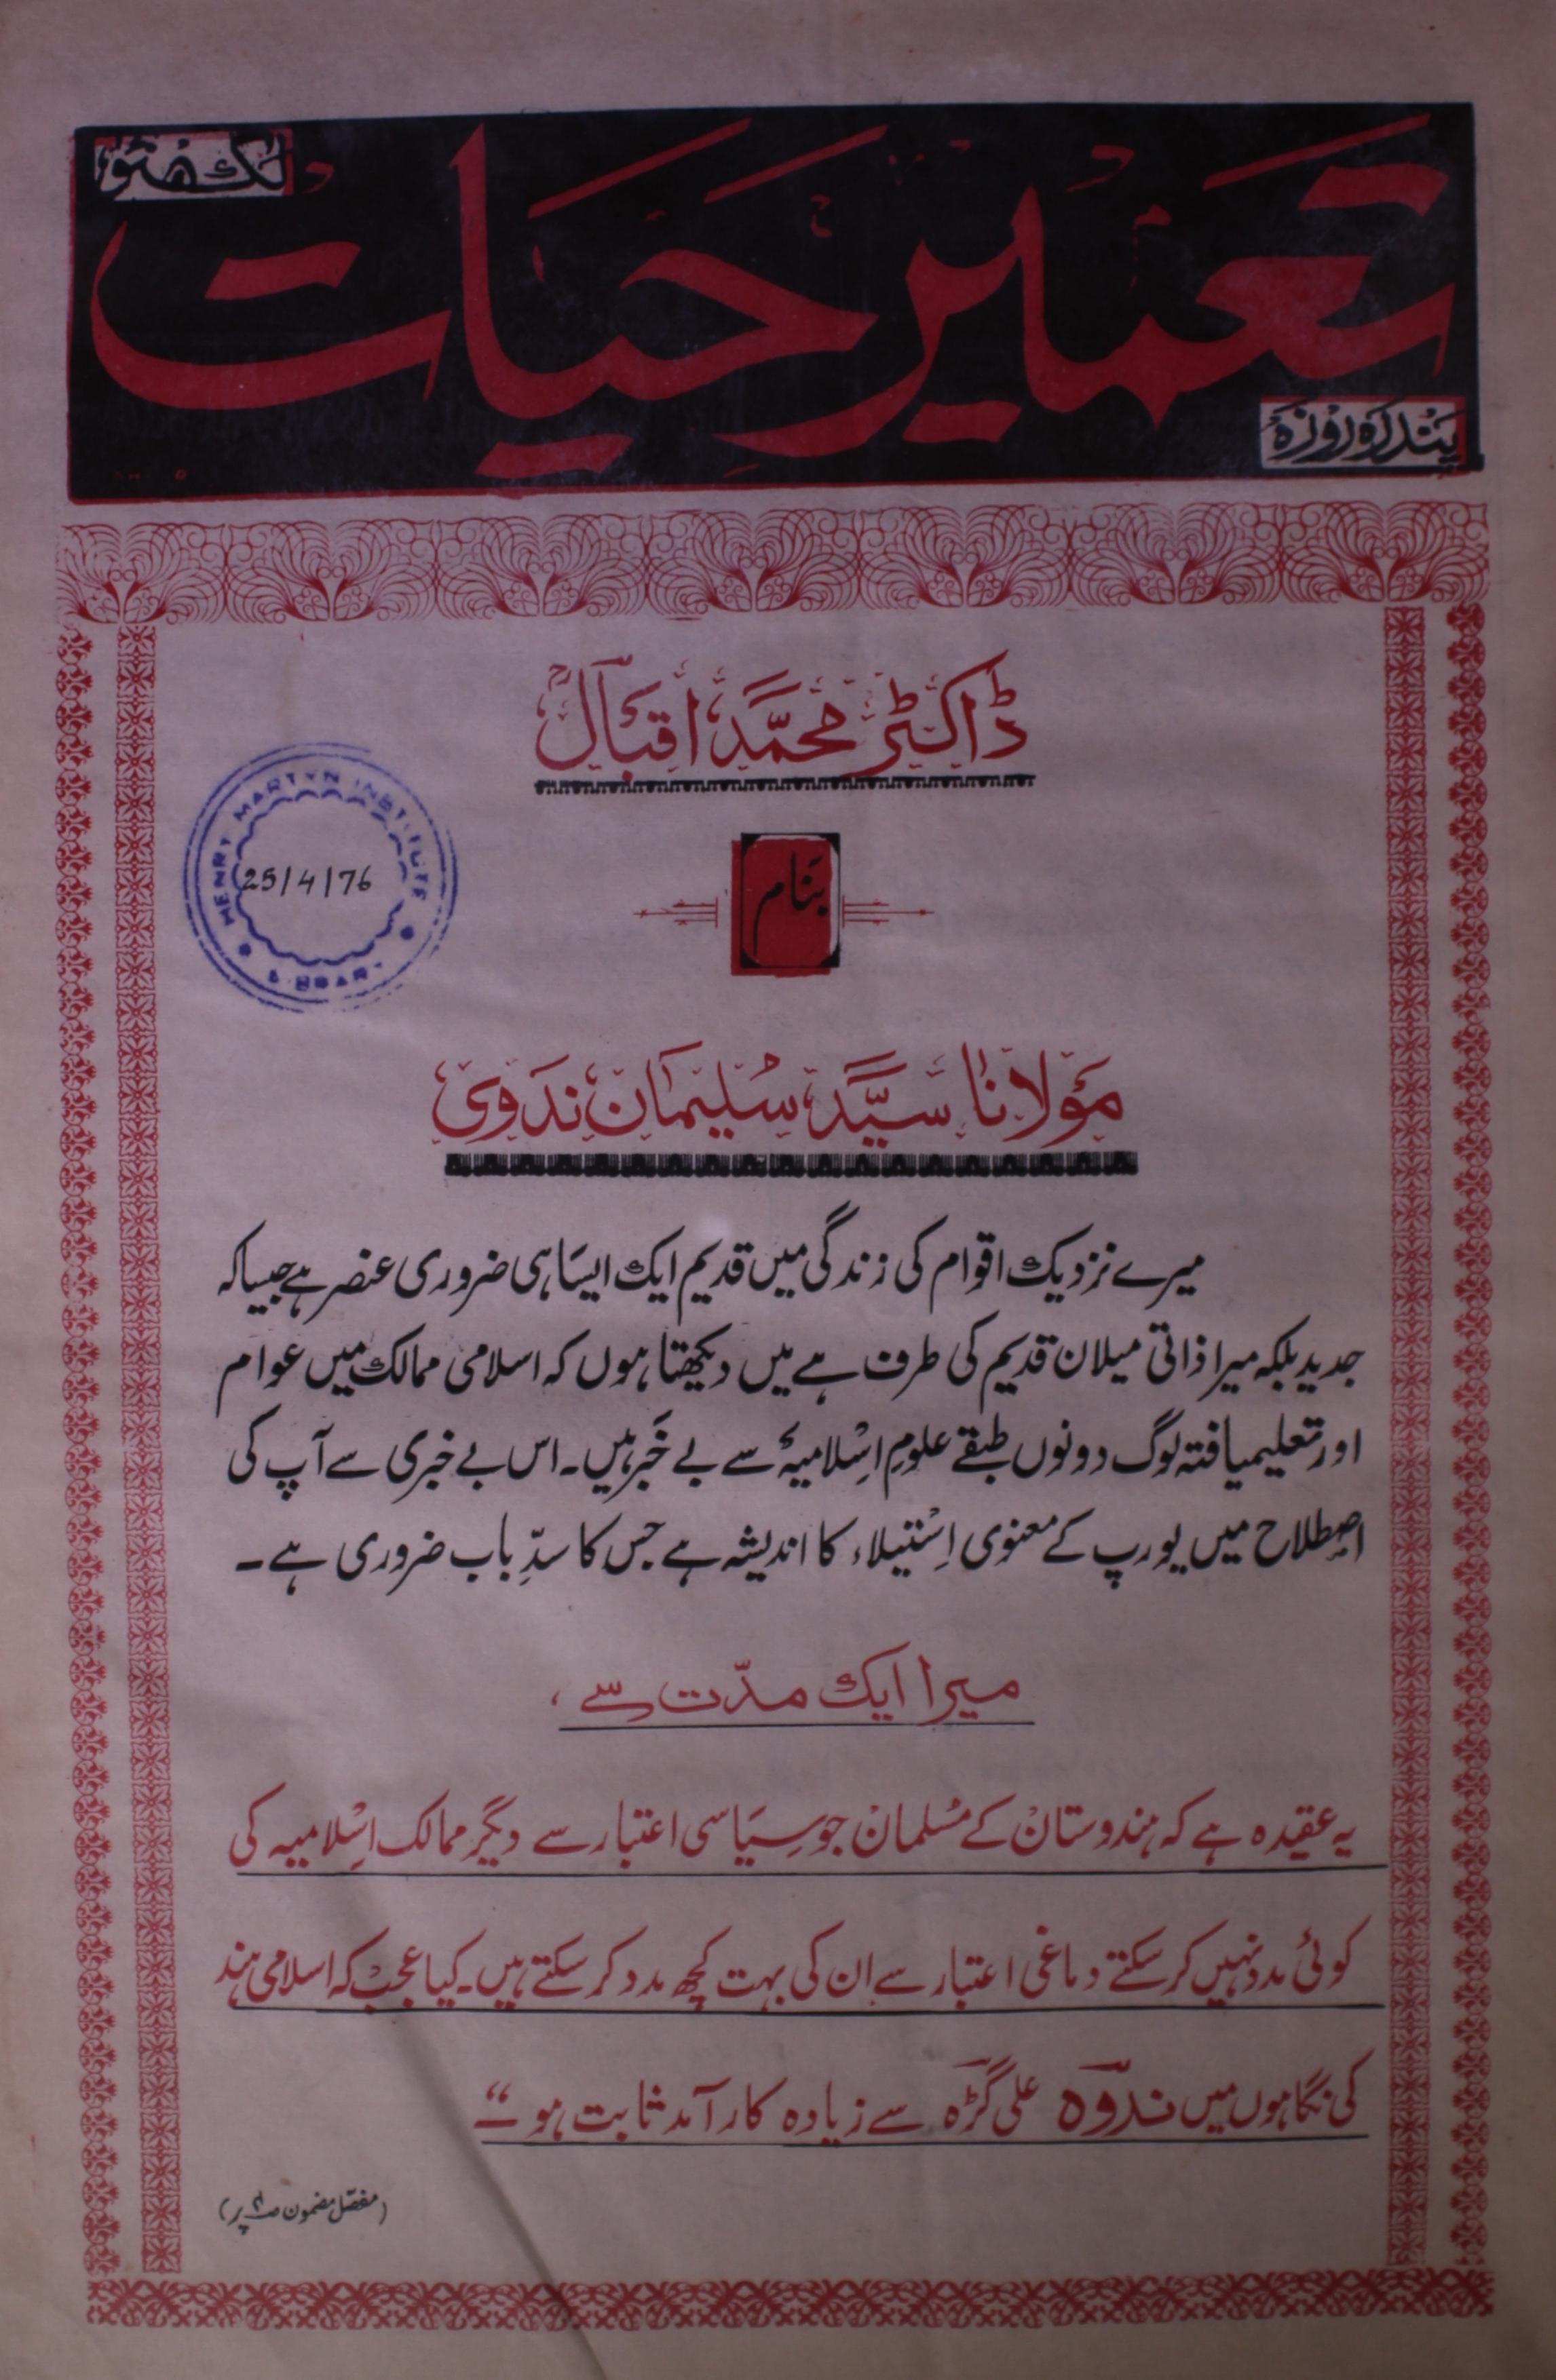 لکھنؤ
تعمیر حیات
پندرہ روزہ
ڈاکٹر محمد اقبال
HENRY MARTYN INSTITUTE
25/4/76
LIBRARY
بنام
مولانا سید سلیمان ندوی
میرے نزدیک اقوام کی زندگی میں قدیم ایک ایسا ہی ضروری عنصر ہے جیسا کہ
جدید بلکہ میرا ذاتی میلان قدیم کی طرف ہے میں دیکھتا ہوں کہ اسلامی ممالک میں عوام
اور تعلیم یافتہ لوگ دونوں طبقے علومِ اسلامیہ سے بے خبر ہیں۔ اس بے خبری سے آپ کی
اصطلاح میں یورپ کے معنوی استیلاء کا اندیشہ ہے جس کا سدِّ باب ضروری ہے۔
میرا ایک مدّت سے،
یہ عقیدہ ہے کہ ہندوستان کے مسلمان جو سیاسی اعتبار سے دیگر ممالک اسلامیہ کی
کوئی مدد نہیں کر سکتے دماغی اعتبار سے ان کی بہت کچھ مدد کر سکتے ہیں۔ کیا عجب کہ اسلامی ہند
کی نگاہوں میں ندوہ علی گڑھ سے زیادہ کار آمد ثابت ہو۔“
(مفصل مضمون پر)